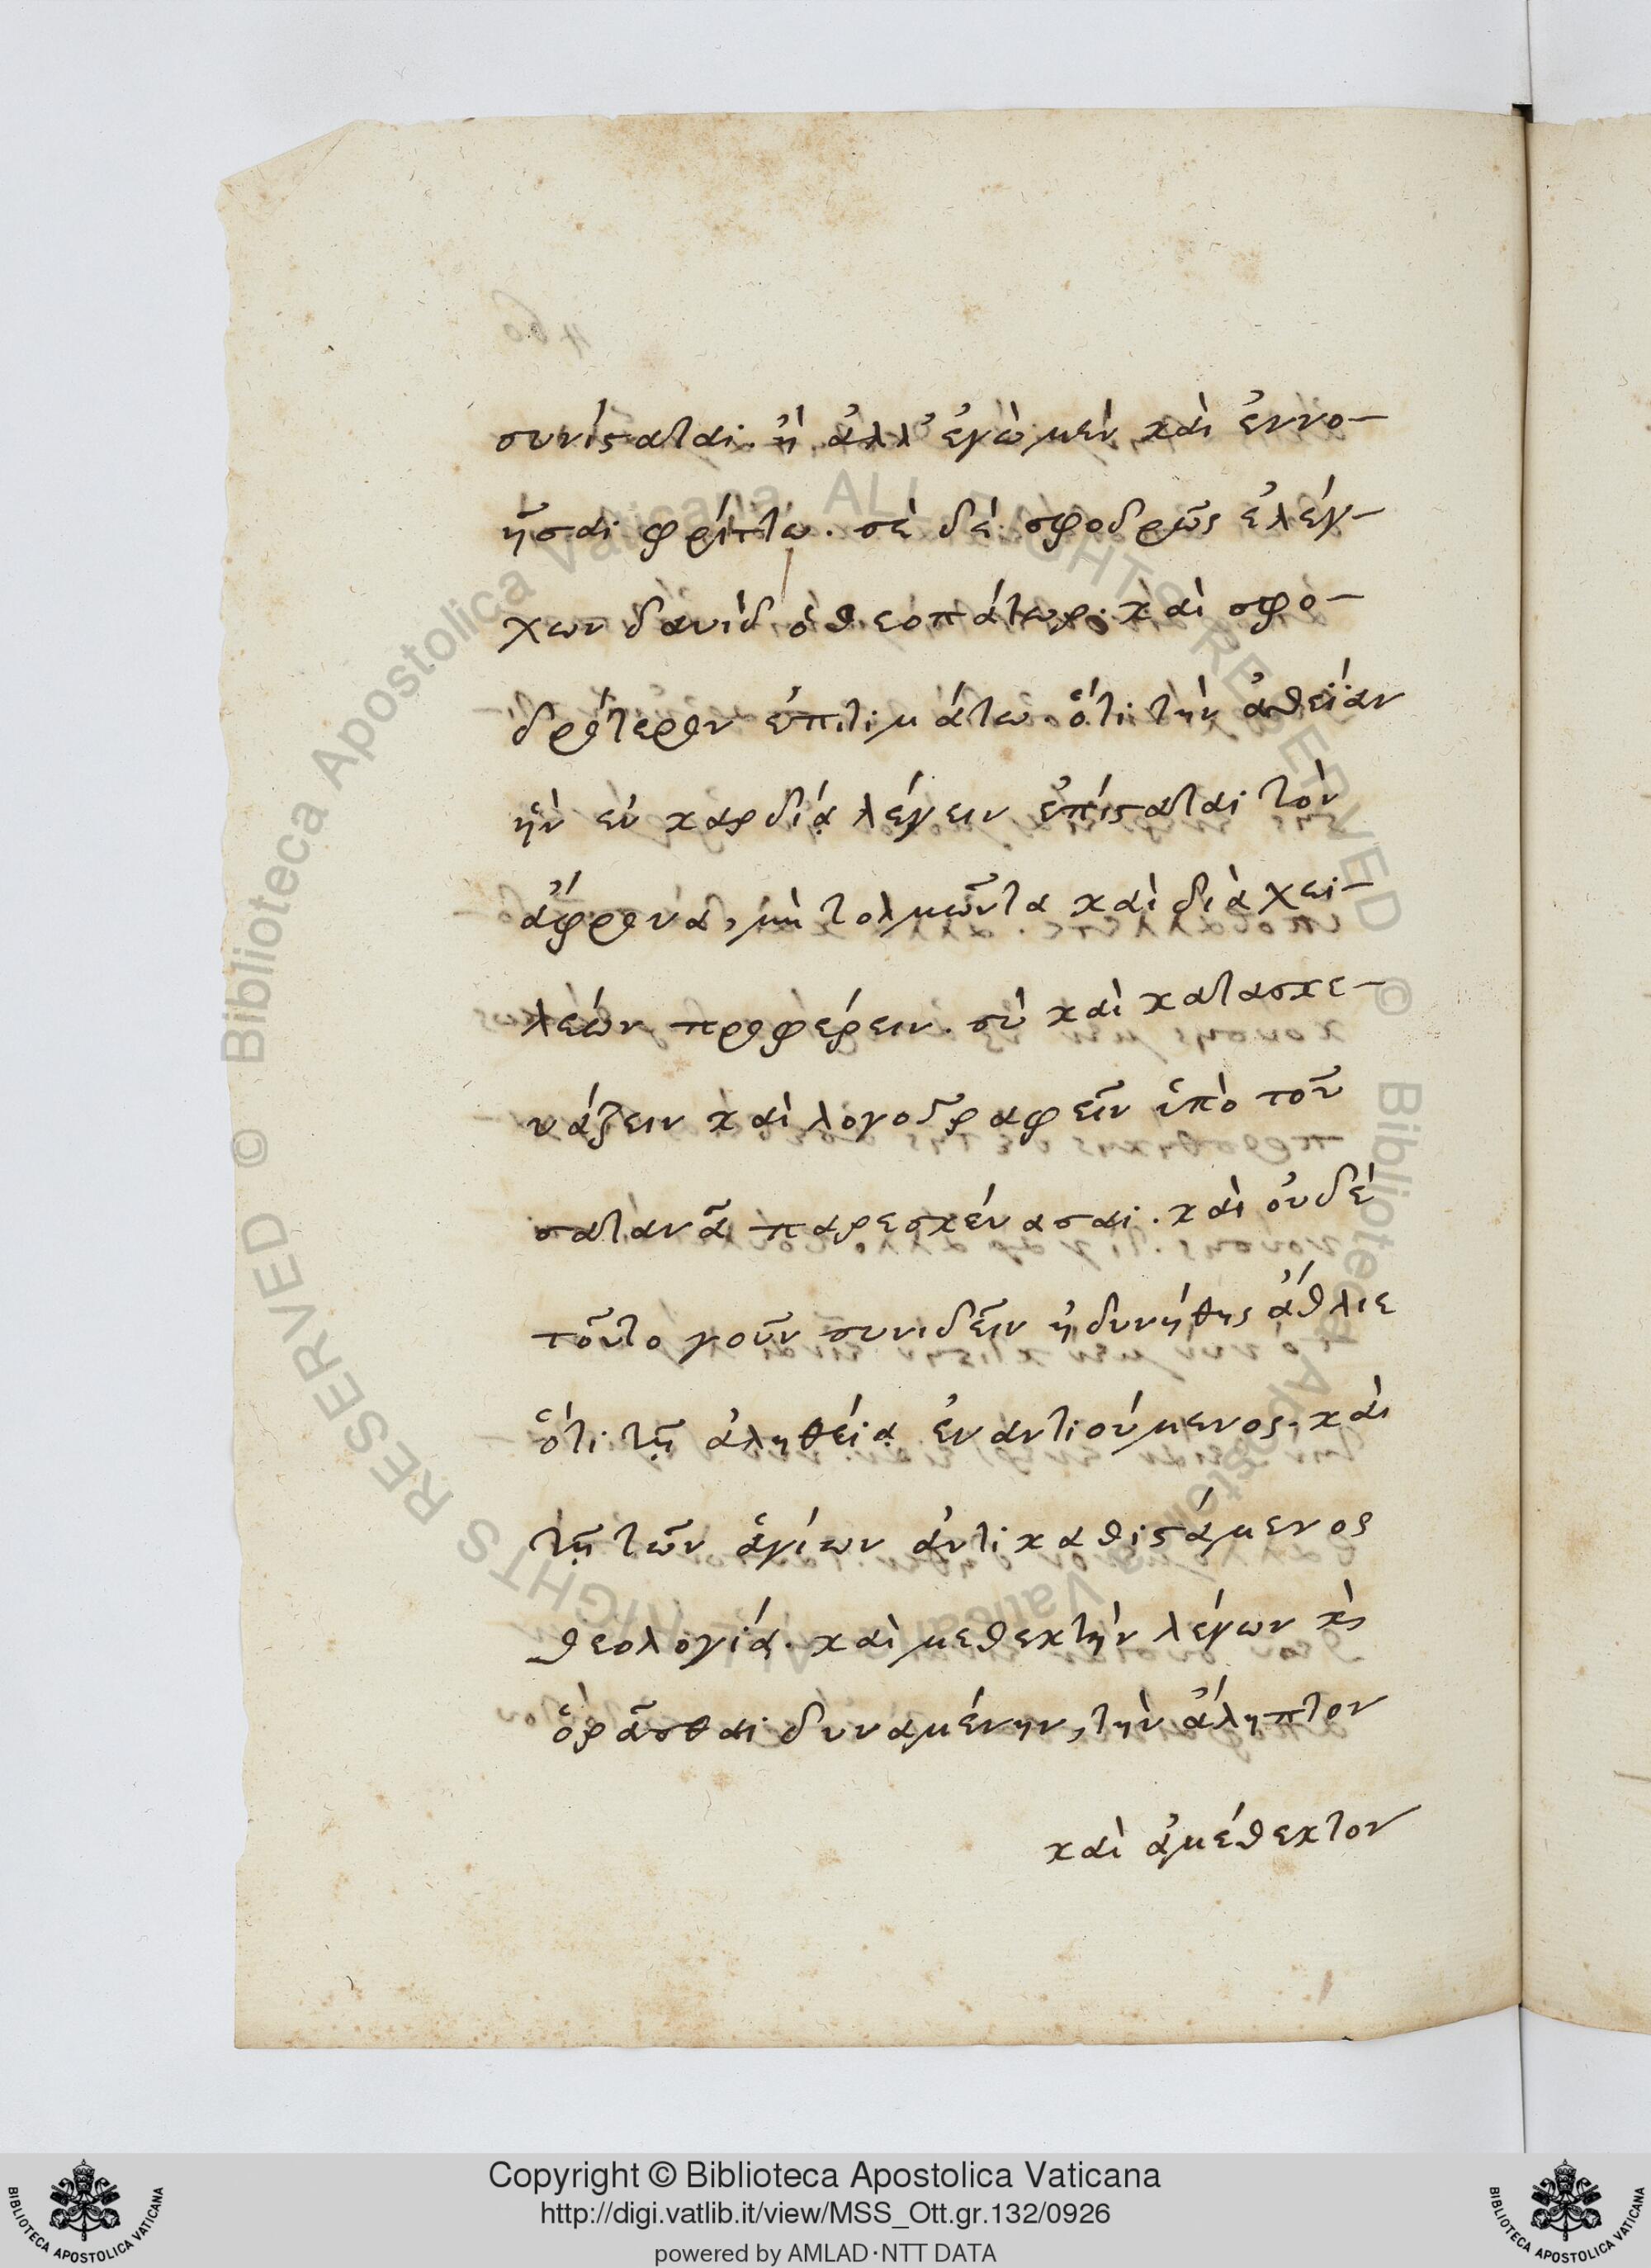 συνίσταται. ἢ ἀλλ' ἐγὼ μὲν καὶ ἐννο-
ῆσαι φρίττω. σὲ δὲ σφοδρῶς ἐλέγ-
χων δαυὶδ ὁ θεοπάτωρ. καὶ σφο-
δρότερον ἐπιτιμάτω. ὅτι τὴν ἀθεΐαν
ἣν ἐν καρδίᾳ λέγειν ἐπίσταται τὸν
ἄφρονα, μὴ τολμῶντα καὶ διὰ χει-
λέων προφέρειν. σὺ καὶ κατασκε-
υάζειν καὶ λογογραφεῖν ὑπὸ τοῦ
σατανᾶ παρεσκεύασαι. καὶ οὐδὲ
τοῦτο γοῦν συνιδεῖν ἠδυνήθης ἄθλιε
ὅτι τῇ ἀληθείᾳ ἐναντιούμενος. καὶ
τῇ τῶν ἁγίων ἀντικαθιστάμενος
θεολογίᾳ. καὶ μεθεκτὴν λέγων κὶ
ὁρᾶσθαι δυναμένην, τὴν ἄληπτον
καὶ ἀμέθεκτον
460
Biblioteca Apostolica Vaticana ALL RIGHTS RESERVED © Biblioteca Apostolica Vaticana ALL RIGHTS RESERVED ©
Copyright © Biblioteca Apostolica Vaticana
http://digi.vatlib.it/view/MSS_Ott.gr.132/0926
powered by AMLAD·NTT DATA
BIBLIOTECA APOSTOLICA VATICANA
BIBLIOTECA APOSTOLICA VATICANA